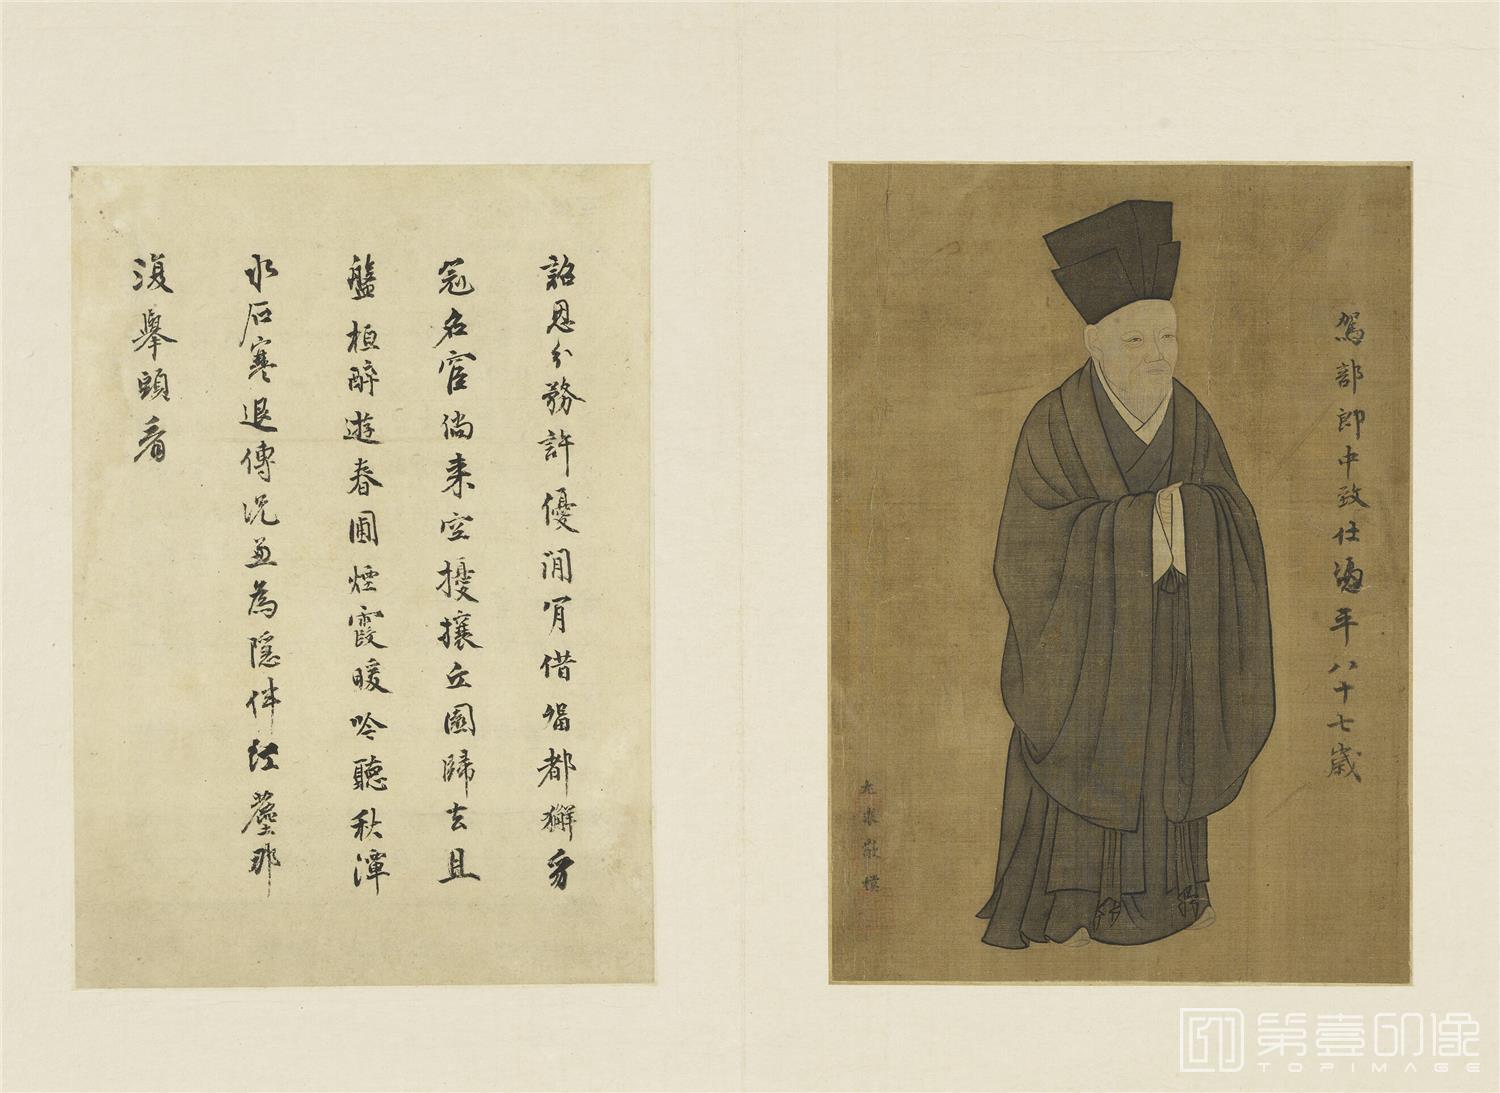 駕部郎中致仕馮平八十七歲
尤求敬橅
詔恩分務許優閒肎借留都獬豸
冠名宦倘来空擾攘丘園歸去且
盤桓醉遊春圃煙霞暖吟聽秋潭
水石寒退傅况並為隱伴紅塵那
復舉頭看
第壹印像
TOPIMAGE